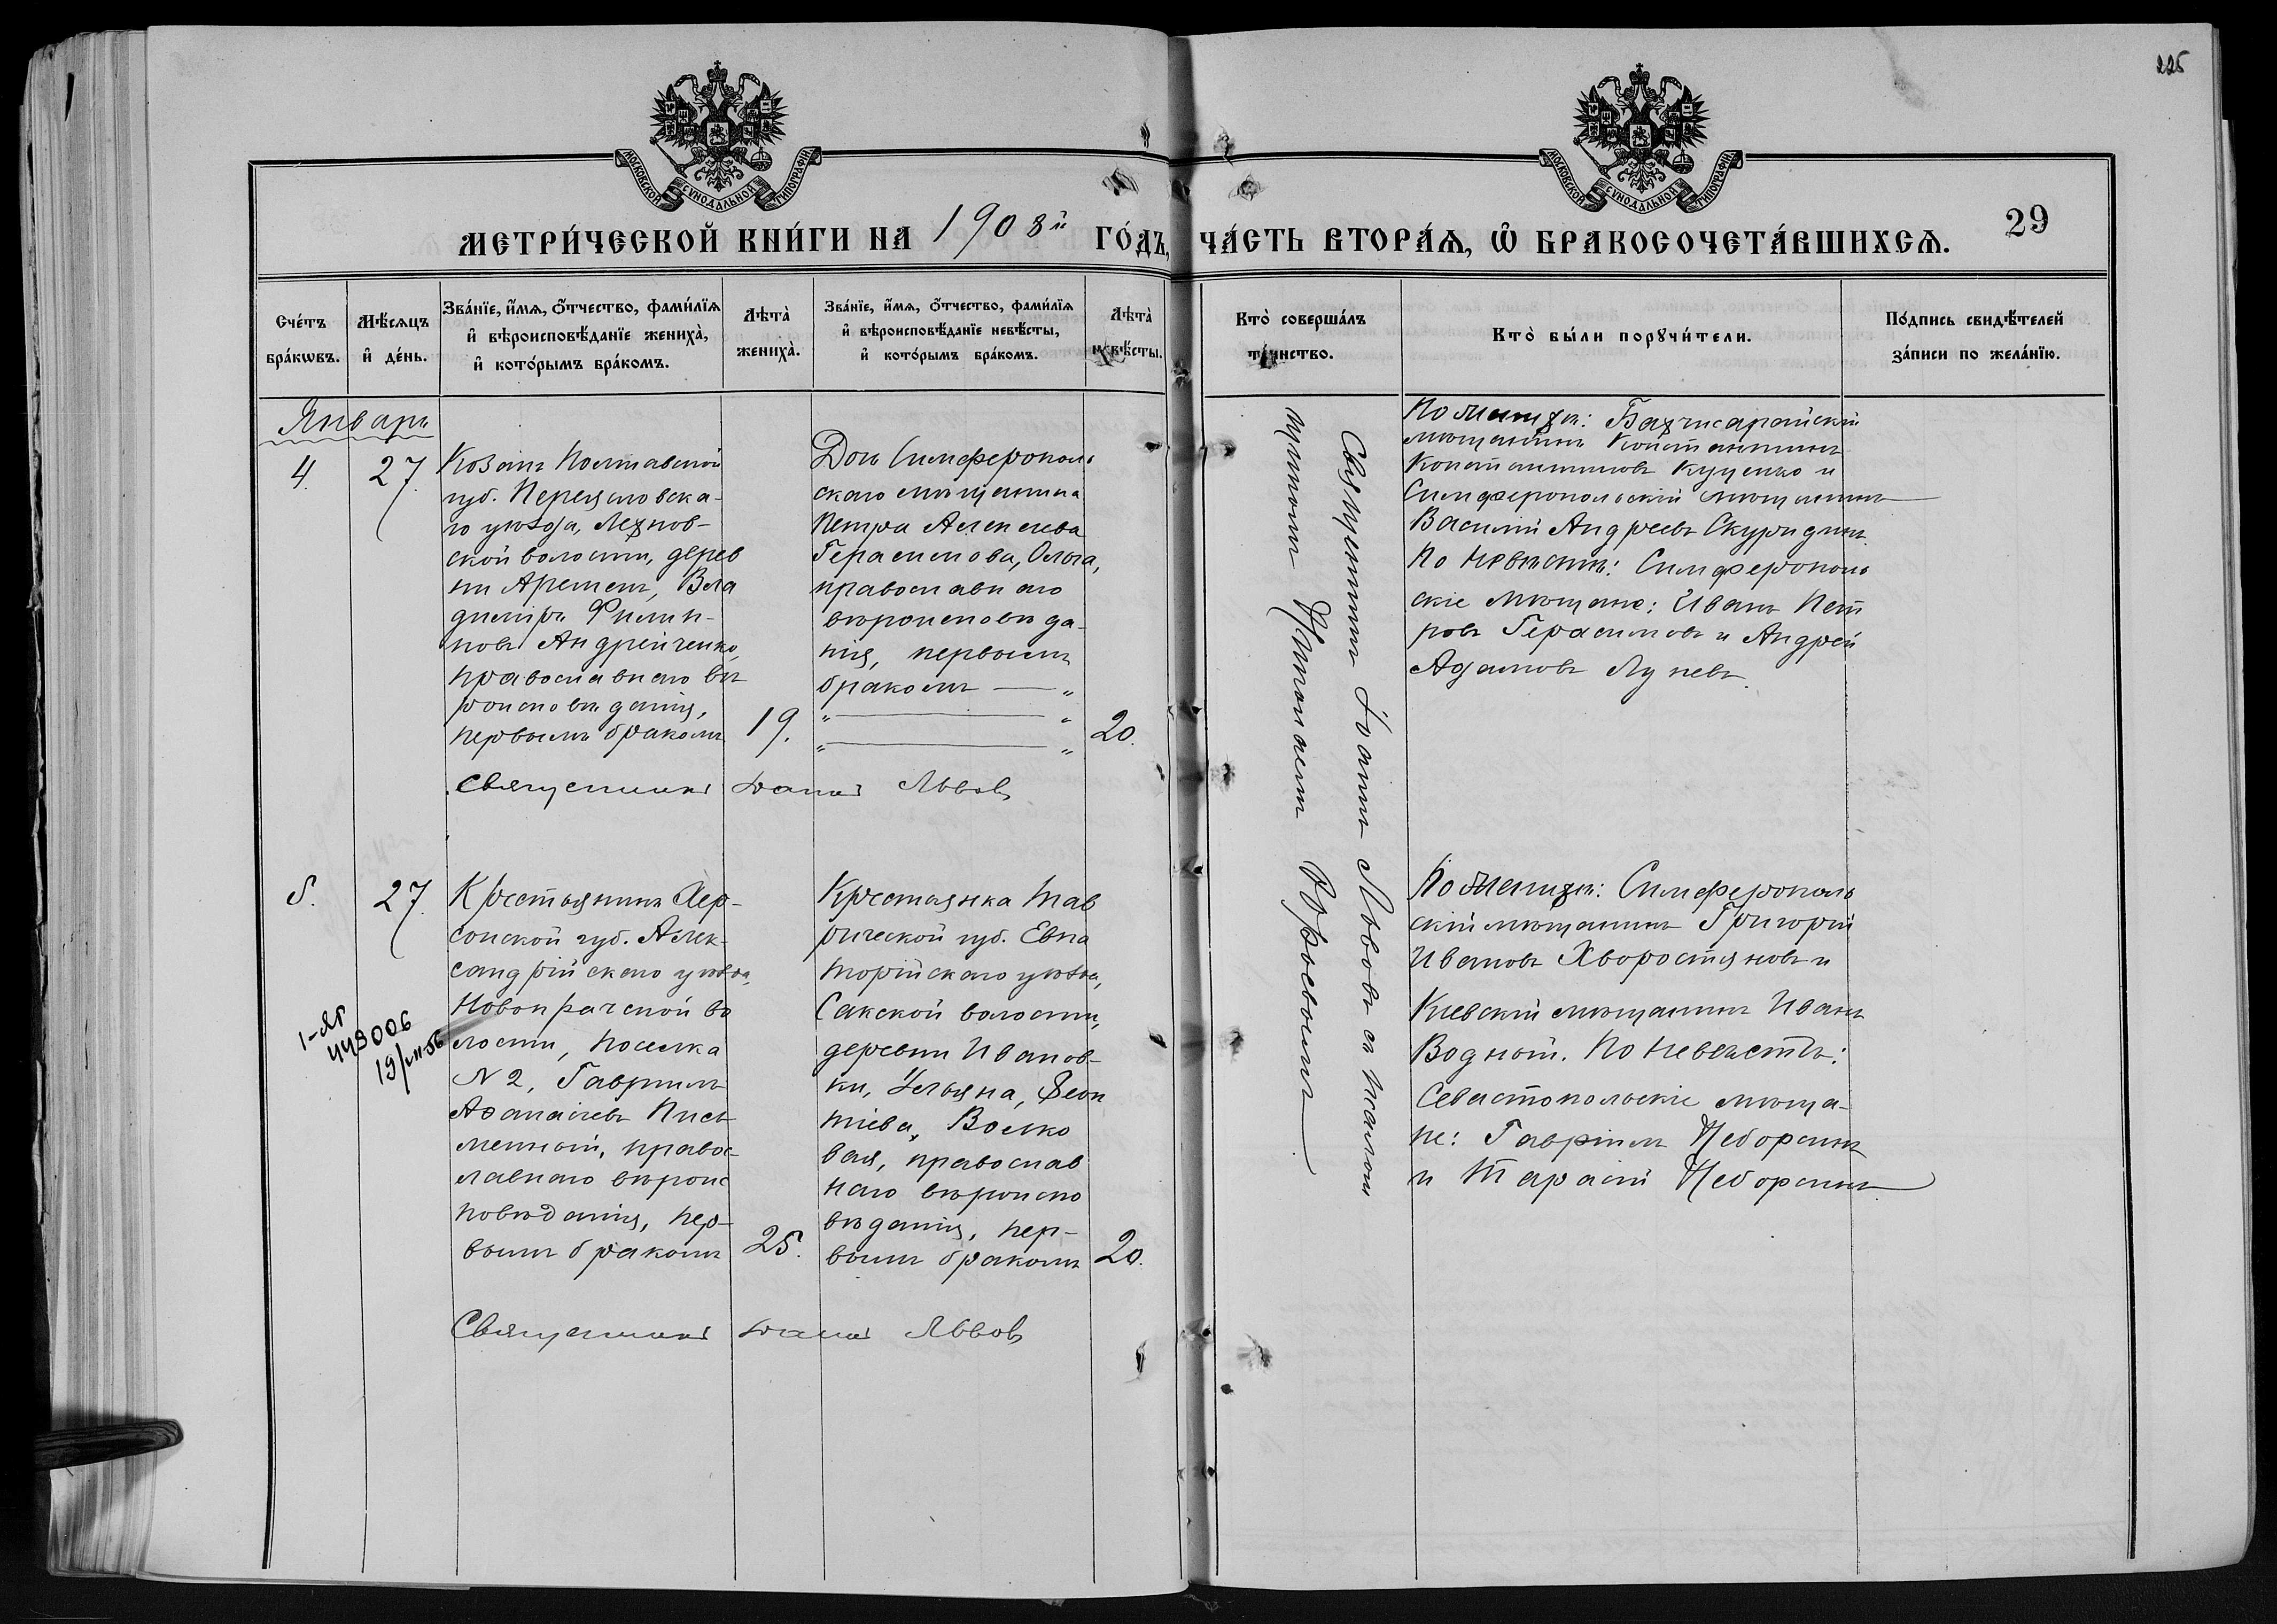 225
МОСКОВСКОЙ СѴНОДАЛЬНОЙ ТИПОГРАФІИ
МОСКОВСКОЙ СѴНОДАЛЬНОЙ ТИПОГРАФІИ
МЕТРИ́ЧЕСКОЙ КНИ́ГИ НА 1908й ГО́ДЪ, ЧА́СТЬ ВТОРА́Ѧ, Ѡ҆ БРАКОСОЧЕТА́ВШИХСѦ.
29
Сче́тъ
бра́кѡвъ.
Мѣ́сѧцъ
и҆ де́нь.
Зва́нїе, и҆́мѧ, ѻ҆́тчество, фами́лїѧ
и҆ вѣроисповѣ́данїе жениха̀,
и҆ кото́рымъ бра́комъ.
Лѣта̀
жениха̀.
Зва́нїе, и҆́мѧ, ѻ҆́тчество, фами́лїѧ
и҆ вѣроисповѣ́данїе невѣ́сты,
и҆ кото́рымъ бра́комъ.
Лѣта̀
невѣ́сты.
Кто̀ соверша́лъ
та́инство.
Кто̀ бы́ли порꙋчи́тели.
По́дпись свидѣ́телей
за́писи по жела́нїю.
Январь
4.
27.
Козакъ Полтавской
губ. Переяславска-
го уѣзда, Лезнов-
ской волости, дерев
ни Аремен, Вла
диміръ Филип-
повъ Андрейченко,
православнаго вѣ
роисповѣданія,
первымъ бракомъ
19.
Дочь Симферополь
скаго мѣщанина
Петра Алексѣева
Герасимова, Ольга,
православнаго
вѣроисповѣда-
нія, первымъ
бракомъ — „
„ — „
„ — „
20.
Священникъ Іоаннъ Львовъ
Священникъ Іоаннъ Львовъ съ псалом
щикомъ Юрьевымъ
По женихѣ: Бахчисарайскій
мѣщанинъ Константинъ
Константиновъ Куценко и
Симферопольскій мѣщанинъ
Василій Андреевъ Скуридинъ.
По невѣстѣ: Симферополь
скіе мѣщане: Иванъ Пет
ровъ Герасимовъ и Андрей
Адамовъ Луневъ.
5.
27.
1-яг
448006
19/VII-56
Крестьянинъ Хер-
сонской губ. Алек-
сандрійскаго уѣзда,
Новопражской во
лости, поселка
N 2, Гавріилъ
Аѳанасіевъ Пись
менный, правос
лавнаго вѣроис
повѣданія, пер-
вымъ бракомъ
25.
Крестьянка Тав
рической губ. Евпа
торійскаго уѣзда,
Сакской волости,
деревни Иванов-
ки, Ульяна, Леон
тіева, Волко
вая, православ
наго вѣроиспо
вѣданія, пер-
вымъ бракомъ
20.
Священникъ Іоаннъ Львовъ
По женихѣ: Симферополь
скій мѣщанинъ Григорій
Ивановъ Хворостяновъ и
Кіевскій мѣщанинъ Иванъ
Водный. По невѣстѣ:
Севастопольскіе мѣща-
не: Гавріилъ
и Тарасій